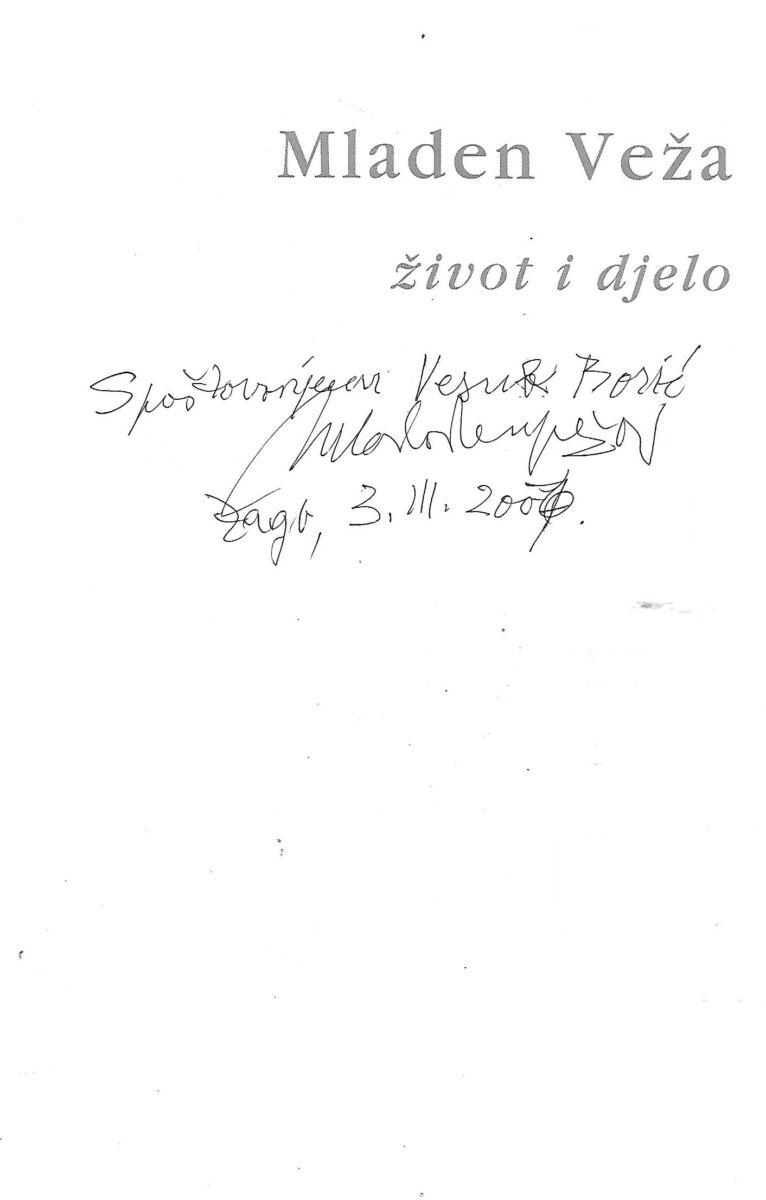 Mladen Veža
život i djelo
Spoštovanjem Borić
Zagb, 3. III.